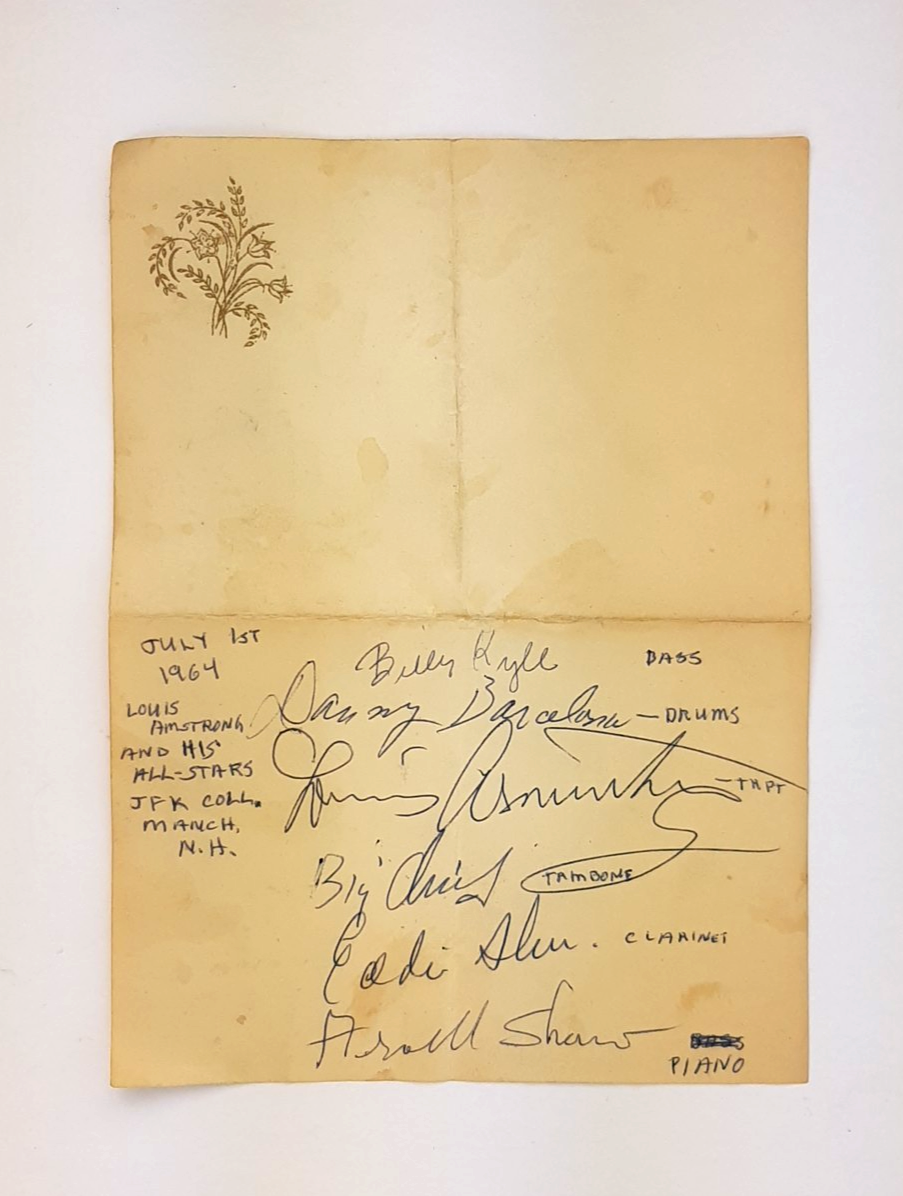 JULY 1ST
1964
LOUIS
AMSTRONG
AND HIS
ALL-STARS
JFK COLL.
MANCH,
N.H.
Billy Kyle BASS
Danny Barcelona — DRUMS
Louis Armstrong — TMPT
Big Chief TAMBONE
Eddie Shu. CLARINET
Arvell Shaw
PIANO